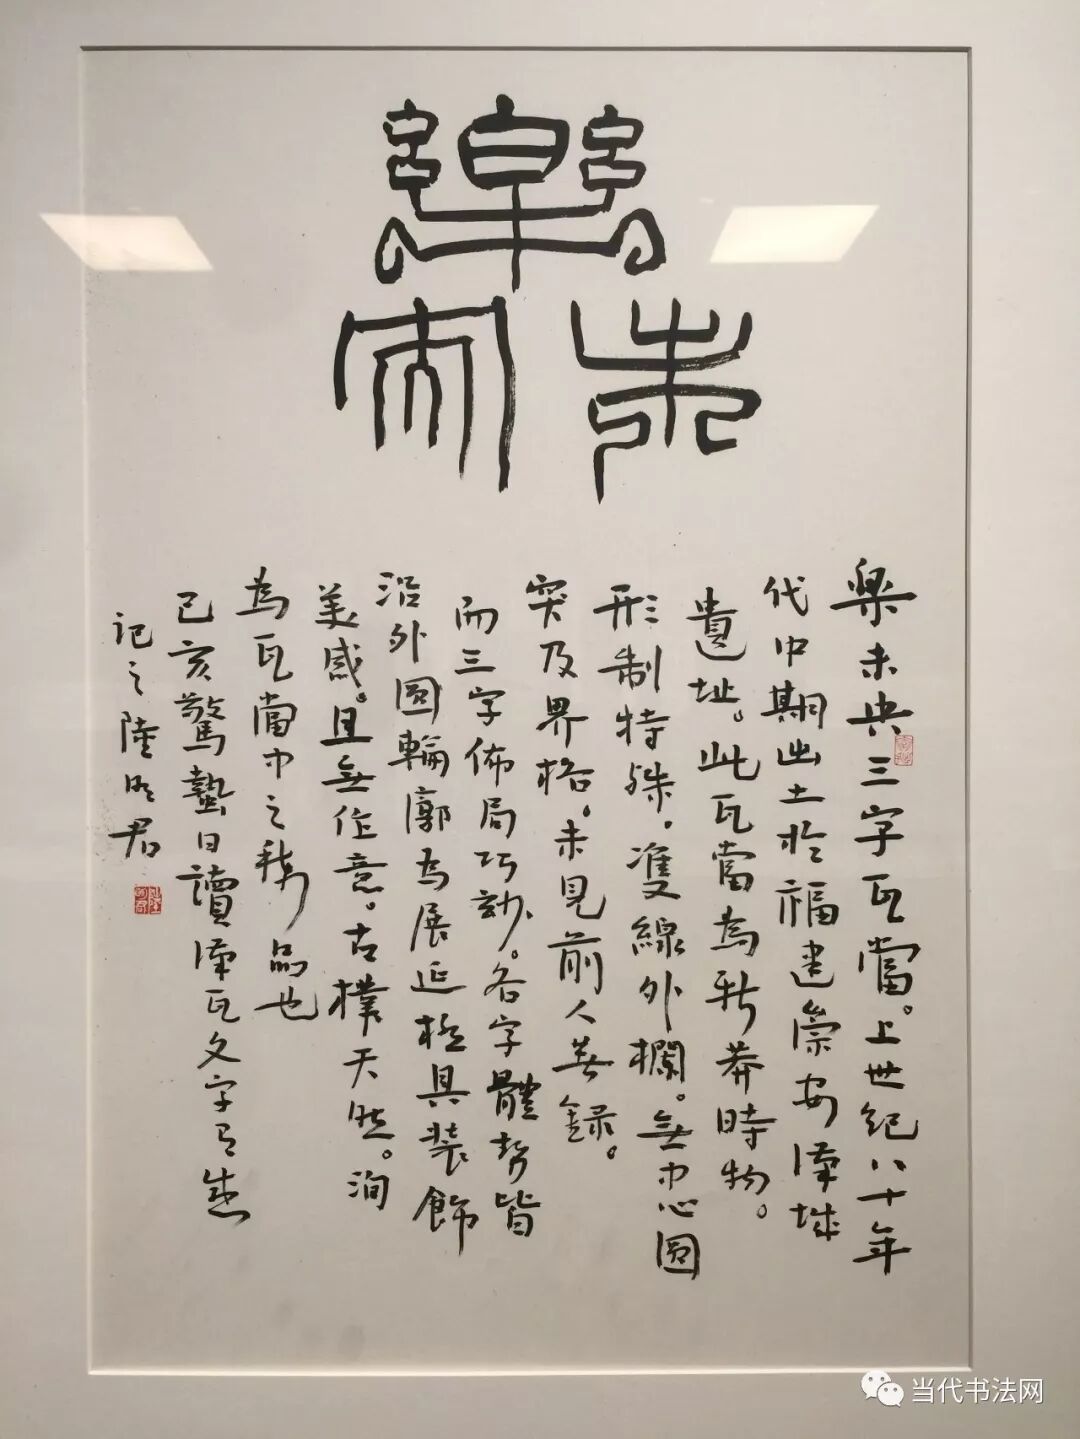 樂未央
樂未央三字瓦當。上世紀八十年
代中期出土於福建崇安漢城
遺址。此瓦當為新莽時物。
形制特殊。雙線外欄。無中心圓
突及界格。未見前人著録。
而三字佈局巧妙。各字體勢皆
沿外圓輪廓為展延極具裝飾
美感。且無作意。古樸天然。洵
為瓦當中之品也
己亥驚蟄日讀漢瓦文字有感
記之陸明君
当代书法网